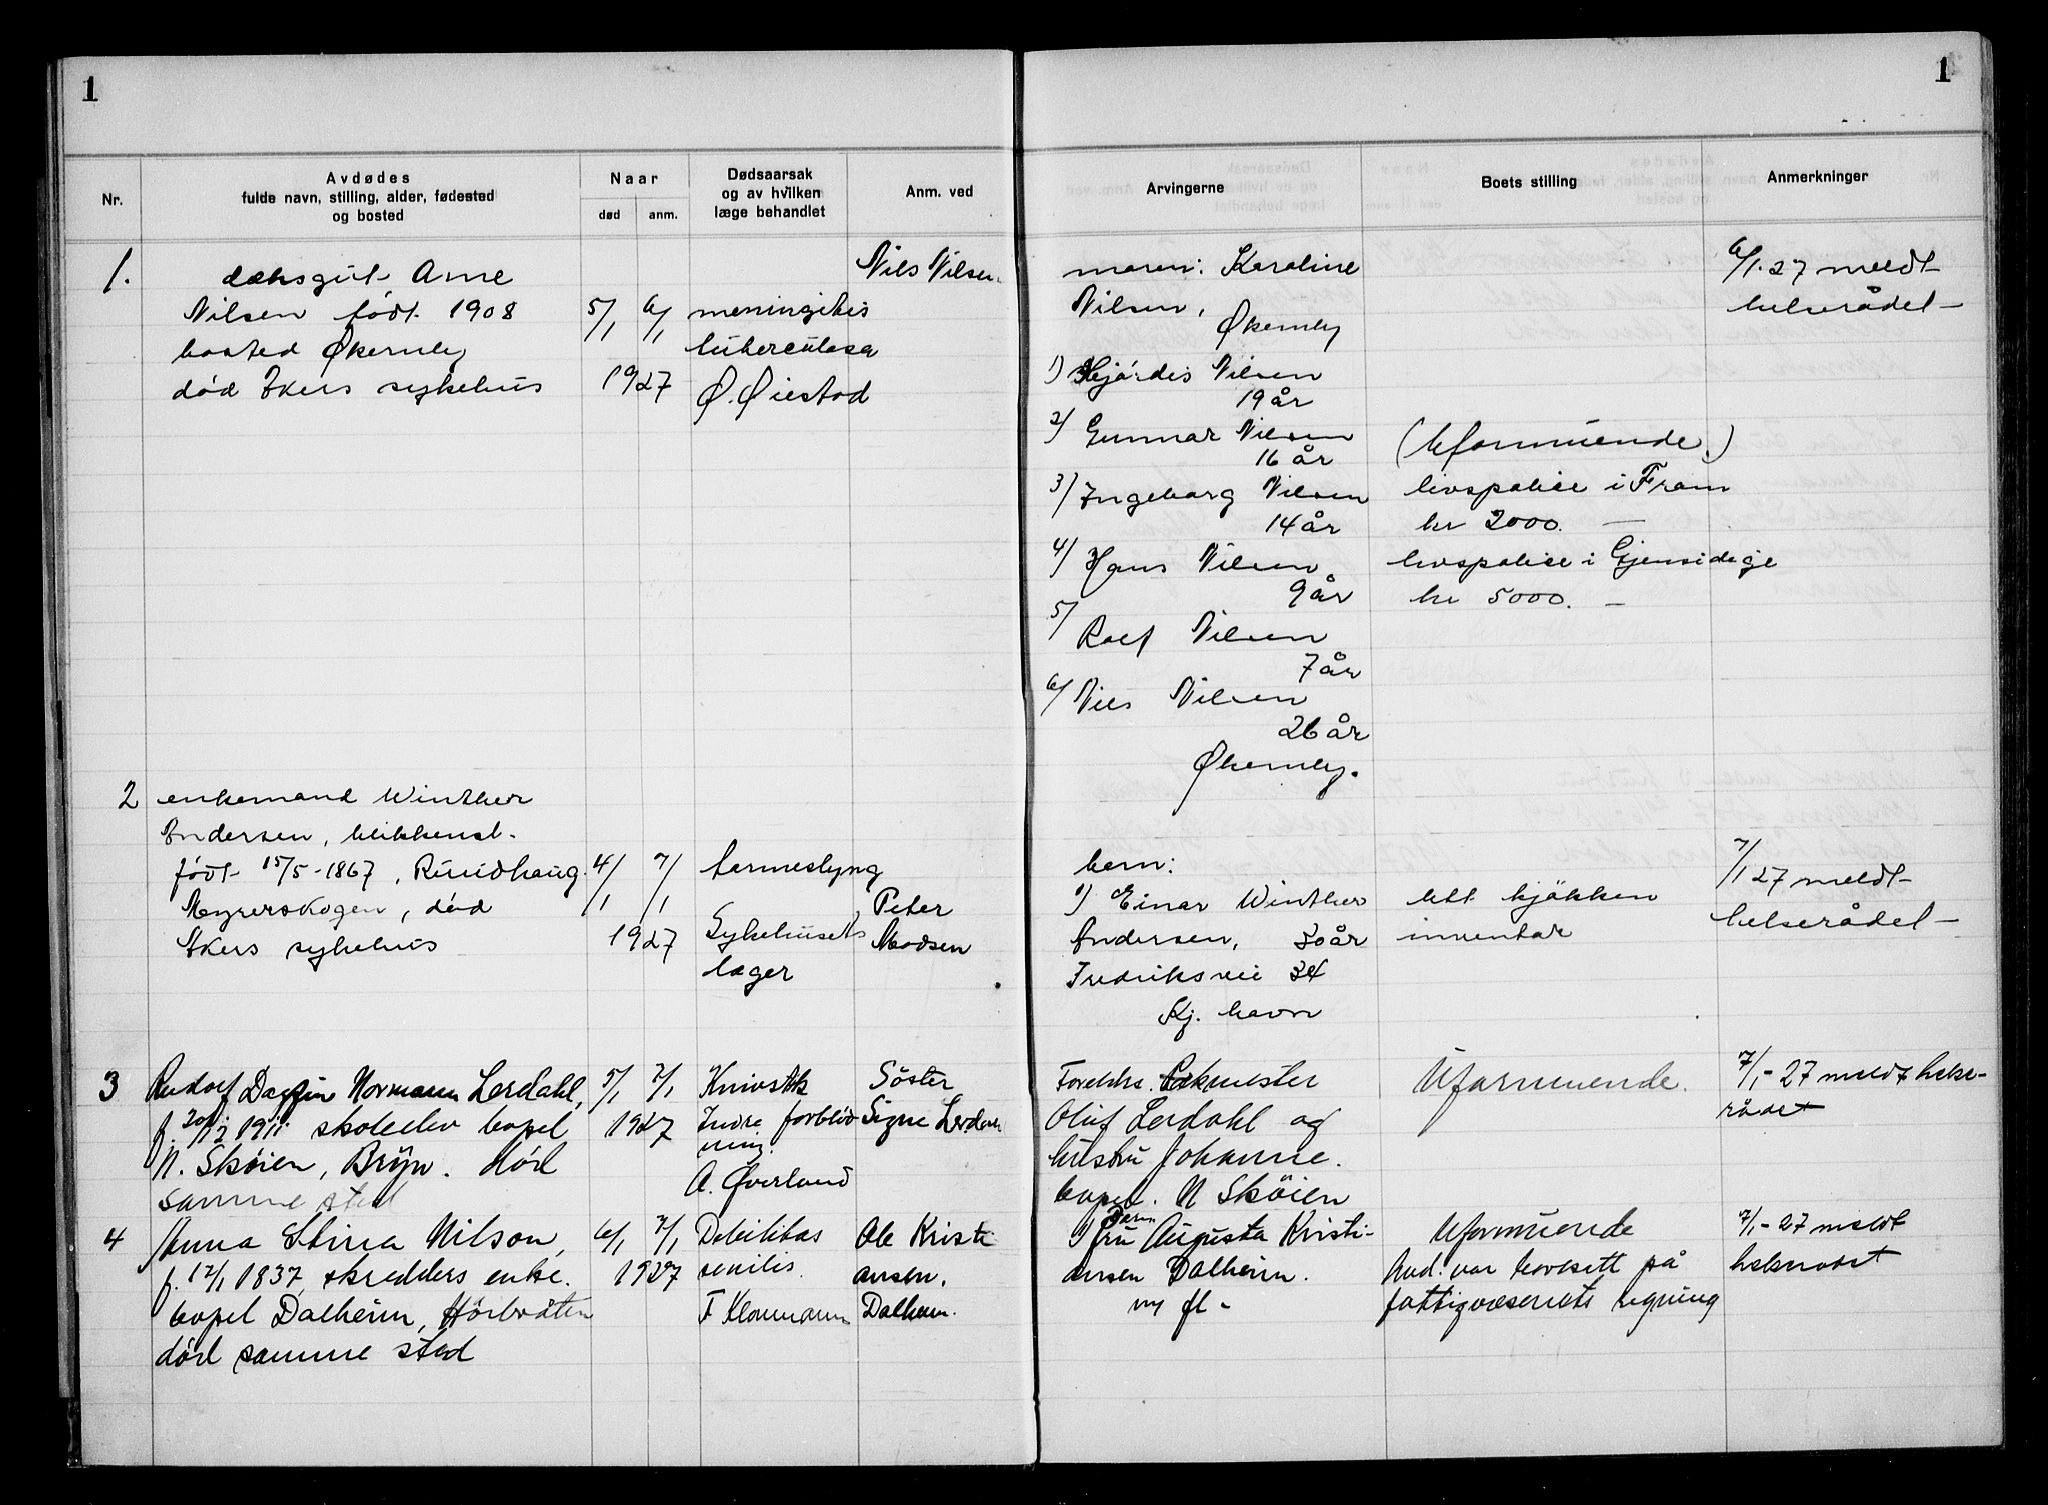 1
1
Nr.
Avdødes
fulde navn, stilling, alder, fødested
og bosted
Naar
død
anm.
Dødsaarsak
og av hvilken
læge behandlet
Anm. ved
Arvingerne
Boets stilling
Anmerkninger
1.
dæksgut Arne
Nilsen født 1908
bosted Økernby
død Akers sykehus
5/1 6/1
1927
meningitis
tuberculosa
Ø. Øiestad
Nils Nilsen.
moren: Karoline
Nilsen,
Økernby
1) Hjördis Nilsen
19 år
2) Gunnar Nilsen
16 år
3) Ingeborg Nilsen
14 år
4) Hans Nilsen
9 år
5) Rolf Nilsen
7 år
6) Nils Nilsen
26 år
Økernby.
(Uformuende)
livspolise i Fram
kr 2000. —
livspolise i Gjensidige
kr 5000. —
6/1.27 meldt
helserådet
2
enkemand Winther
Andersen, blikkensl.
født 15/5-1867, Rundhaug
Meyerskogen, död
Akers sykehus
4/1 7/1
1927
tarmeslyng
Sykehusets
læger
Peter
Madsen
barn:
1) Einar Winther
Andersen, 30 år
Fredriksvei 34
Kj. havn
litt kjökken
inventar
7/1 27 meldt
helserådet
3
Rudolf Dagfin Normann Lerdahl,
f. 1911 skoleelev bopel
N. Skøien, Bryn. död
samme sted
5/1 7/1
1927
Knivstik
Indre forblød-
ning.
A. Øverland
Söster
Signe Lerdahl
Foreldre.
Oluf Lerdahl og
hustru Johanne.
bopel. N Skøien
Uformuende.
7/1-27 meldt helse-
rådet
4
Anna Stina Nilson,
f. 12/1 1837, skredders enke.
bopel Dalheim, Hörbråten
död samme sted
6/1 7/1
1927
Debilitas
senilis.
F Klaumann
Ole Kristi
ansen,
Dalheim.
Barn
1 fru Augusta Kristi-
ansen Dalheim.
m fl -
Uformuende
Avd. var bortsett på
fattigvæsenets regning
7/1-27 meldt
helserådet